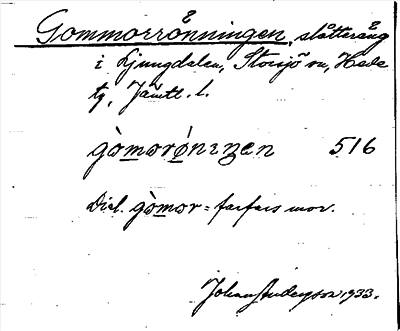 Gommorrånningen, slåtteräng
i Ljungdalen, Storsjö sn, Hede
tg, Jämtl. l.
gòmorǫ́nıŋen 516
Dial. gòmor = farfars mor.
Johan Anderson 1933.